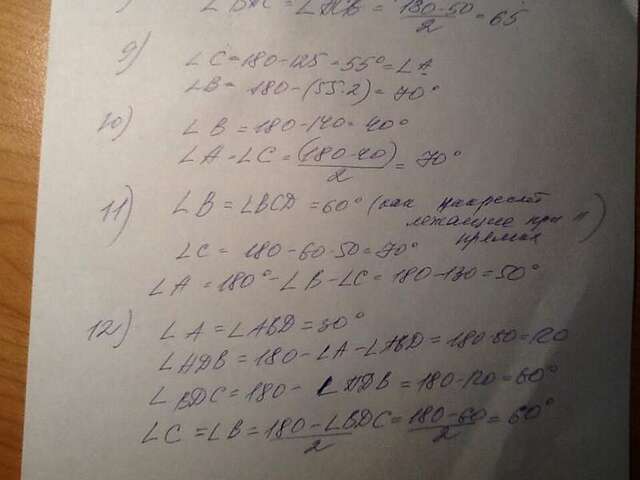 ∠BAC = ∠ACB = (180-50)/2 = 65
9) ∠C = 180-125 = 55° = ∠A
∠B = 180-(55·2) = 70°
10) ∠B = 180-140 = 40°
∠A = ∠C = (180-40)/2 = 70°
11) ∠B = ∠BCD = 60° (как накрест
лежащие при ||
прямых)
∠C = 180-60-50 = 70°
∠A = 180°-∠B-∠C = 180-130 = 50°
12) ∠A = ∠ABD = 30°
∠ADB = 180-∠A-∠ABD = 180-80 = 120
∠BDC = 180-∠ADB = 180-120 = 60°
∠C = ∠B = (180-∠BDC)/2 = (180-60)/2 = 60°